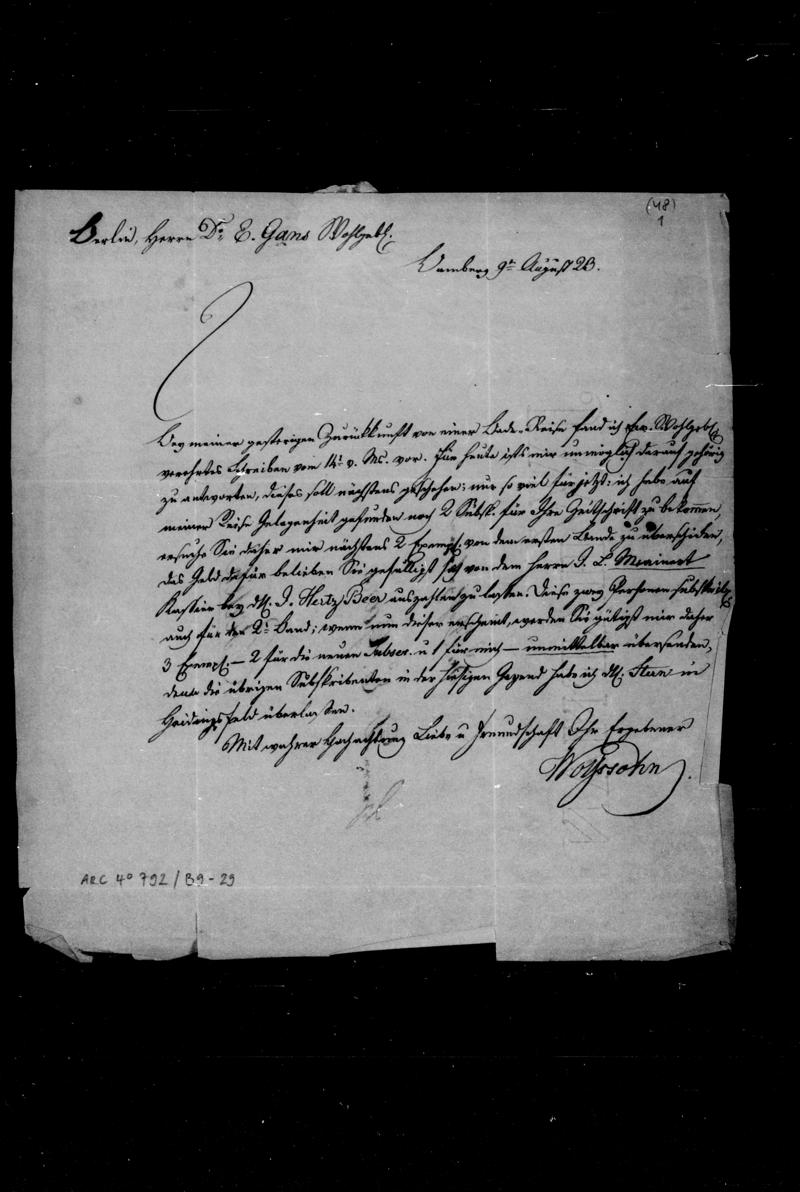 (48)
1
Berlin, Herrn Dr. E. Gans Wohlgeb.
Bamberg 9tn August 23.
Bey meiner gestrigen Zurückkunft von einer Bade-Reise fand ich Ew. Wohlgeb
verehrtes Schreiben vom 14t v. Ms. vor. Für heute ists mir unmöglich darauf gehörig
zu antworten, dieses soll nächstens geschehen; nur so viel für jetzt: ich habe auf
meiner Reise Gelegenheit gefunden noch 2 Subsk. für Ihre Zeitschrift zu bekommen,
ersuche Sie daher mir nächstens 2 Exempl. von dem ersten Bande zu überschicken,
das Geld dafür belieben Sie gefälligst sich von dem Herrn J. L.
Kassier bey H. J. Hertz Beer auszahlen zu lassen. Diese zwey Personen subskrib
auch für den 2t Band; wenn nun dieser erscheint, werden Sie gütigst mir daher
3 Exempl. – 2 für die neuen Subscr. u 1 für mich – unmittelbar übersenden,
denn die übrigen Subskribenten in der hiesigen Gegend habe ich H. Stern in
Heidingsfeld überlassen.
Mit wahrer Hochachtung Liebe u Freundschaft Ihr Ergebener
Wolfssohn
ARC 4° 792 / B9-29